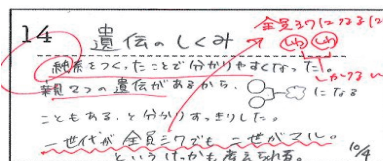 14 遺伝のしくみ
全員シワになるには
しわ しわ
純系をつくったことで分かりやすくなった!。
親2つの遺伝があるから、
になる
こともある、と分かりすっきりした。
一世代が全員シワでも二世がマル。
というけっかも考えられる。
10/4